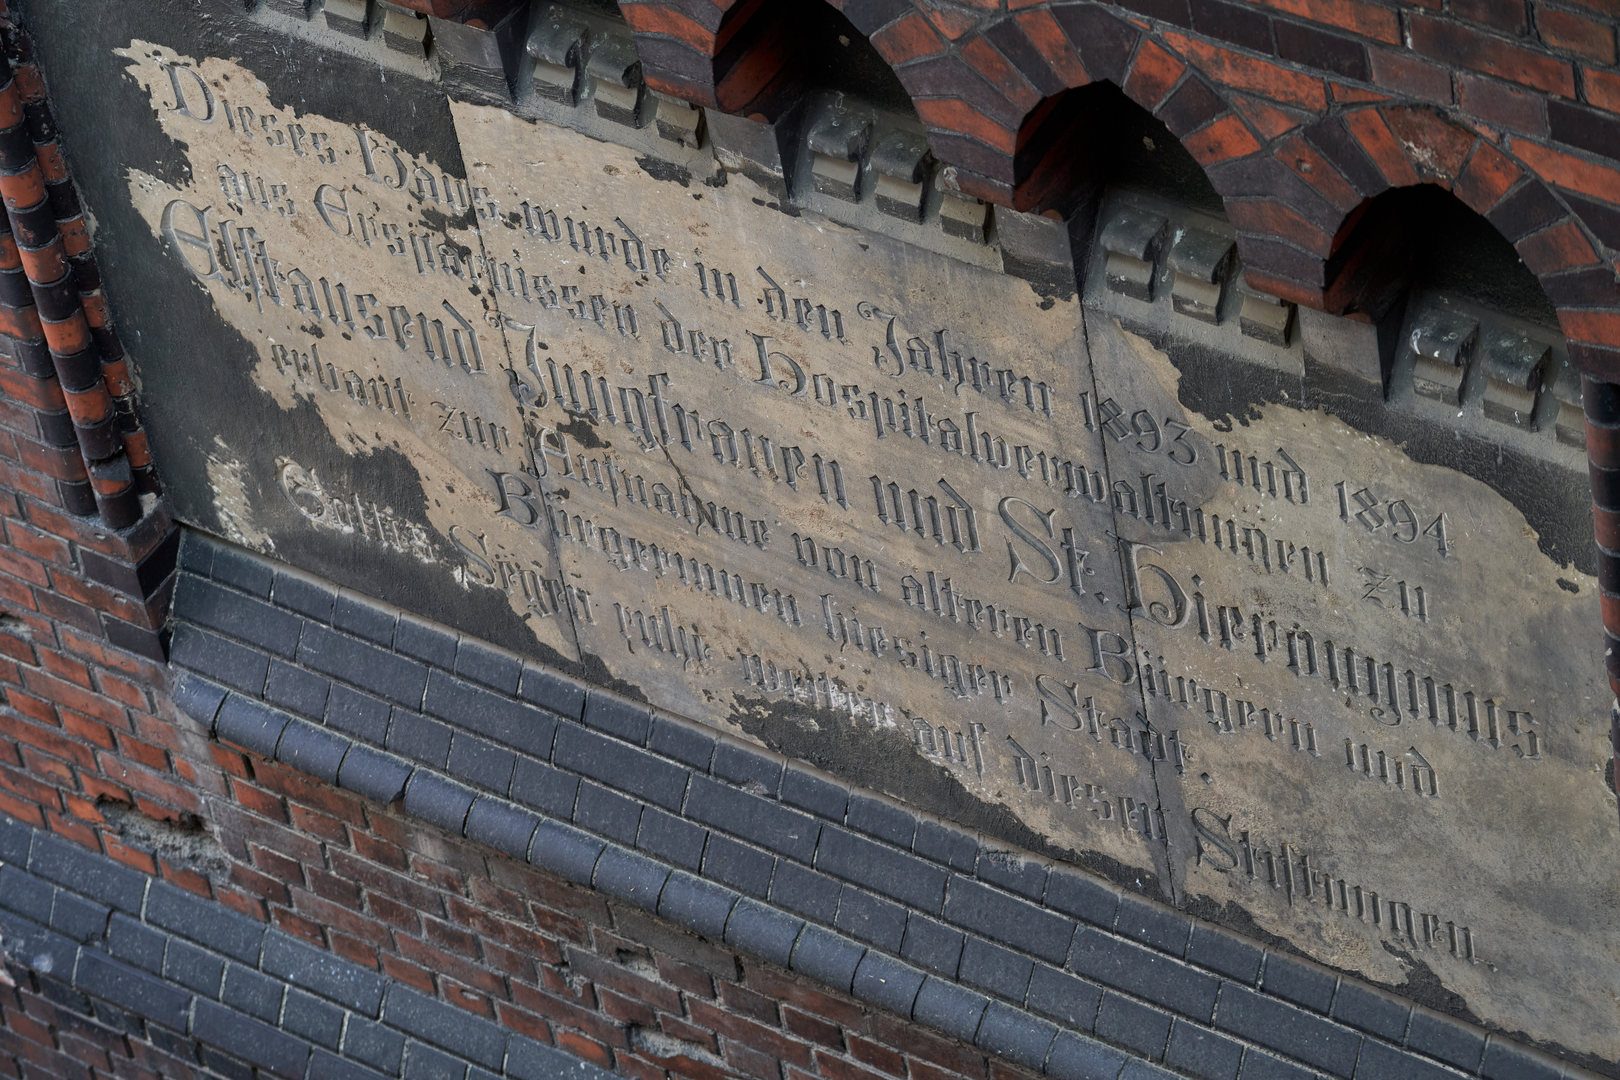 Dieses Haus wurde in den Jahren 1893 und 1894
aus Ersparnissen der Hospitalverwaltungen zu
Elftausend Jungfrauen und St. Hieronymus
erbaut zur Aufnahme von älteren Bürgern und
Bürgerinnen hiesiger Stadt.
Gottes Segen ruhe weiter auf diesen Stiftungen.